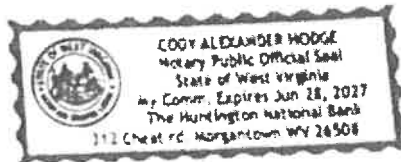 CODY ALEXANDER HODGE
Notary Public Official Seal
State of West Virginia
My Comm. Expires Jun 28, 2027
The Huntington National Bank
312 Cheat rd. Morgantown WV 26508
STATE OF WEST VIRGINIA